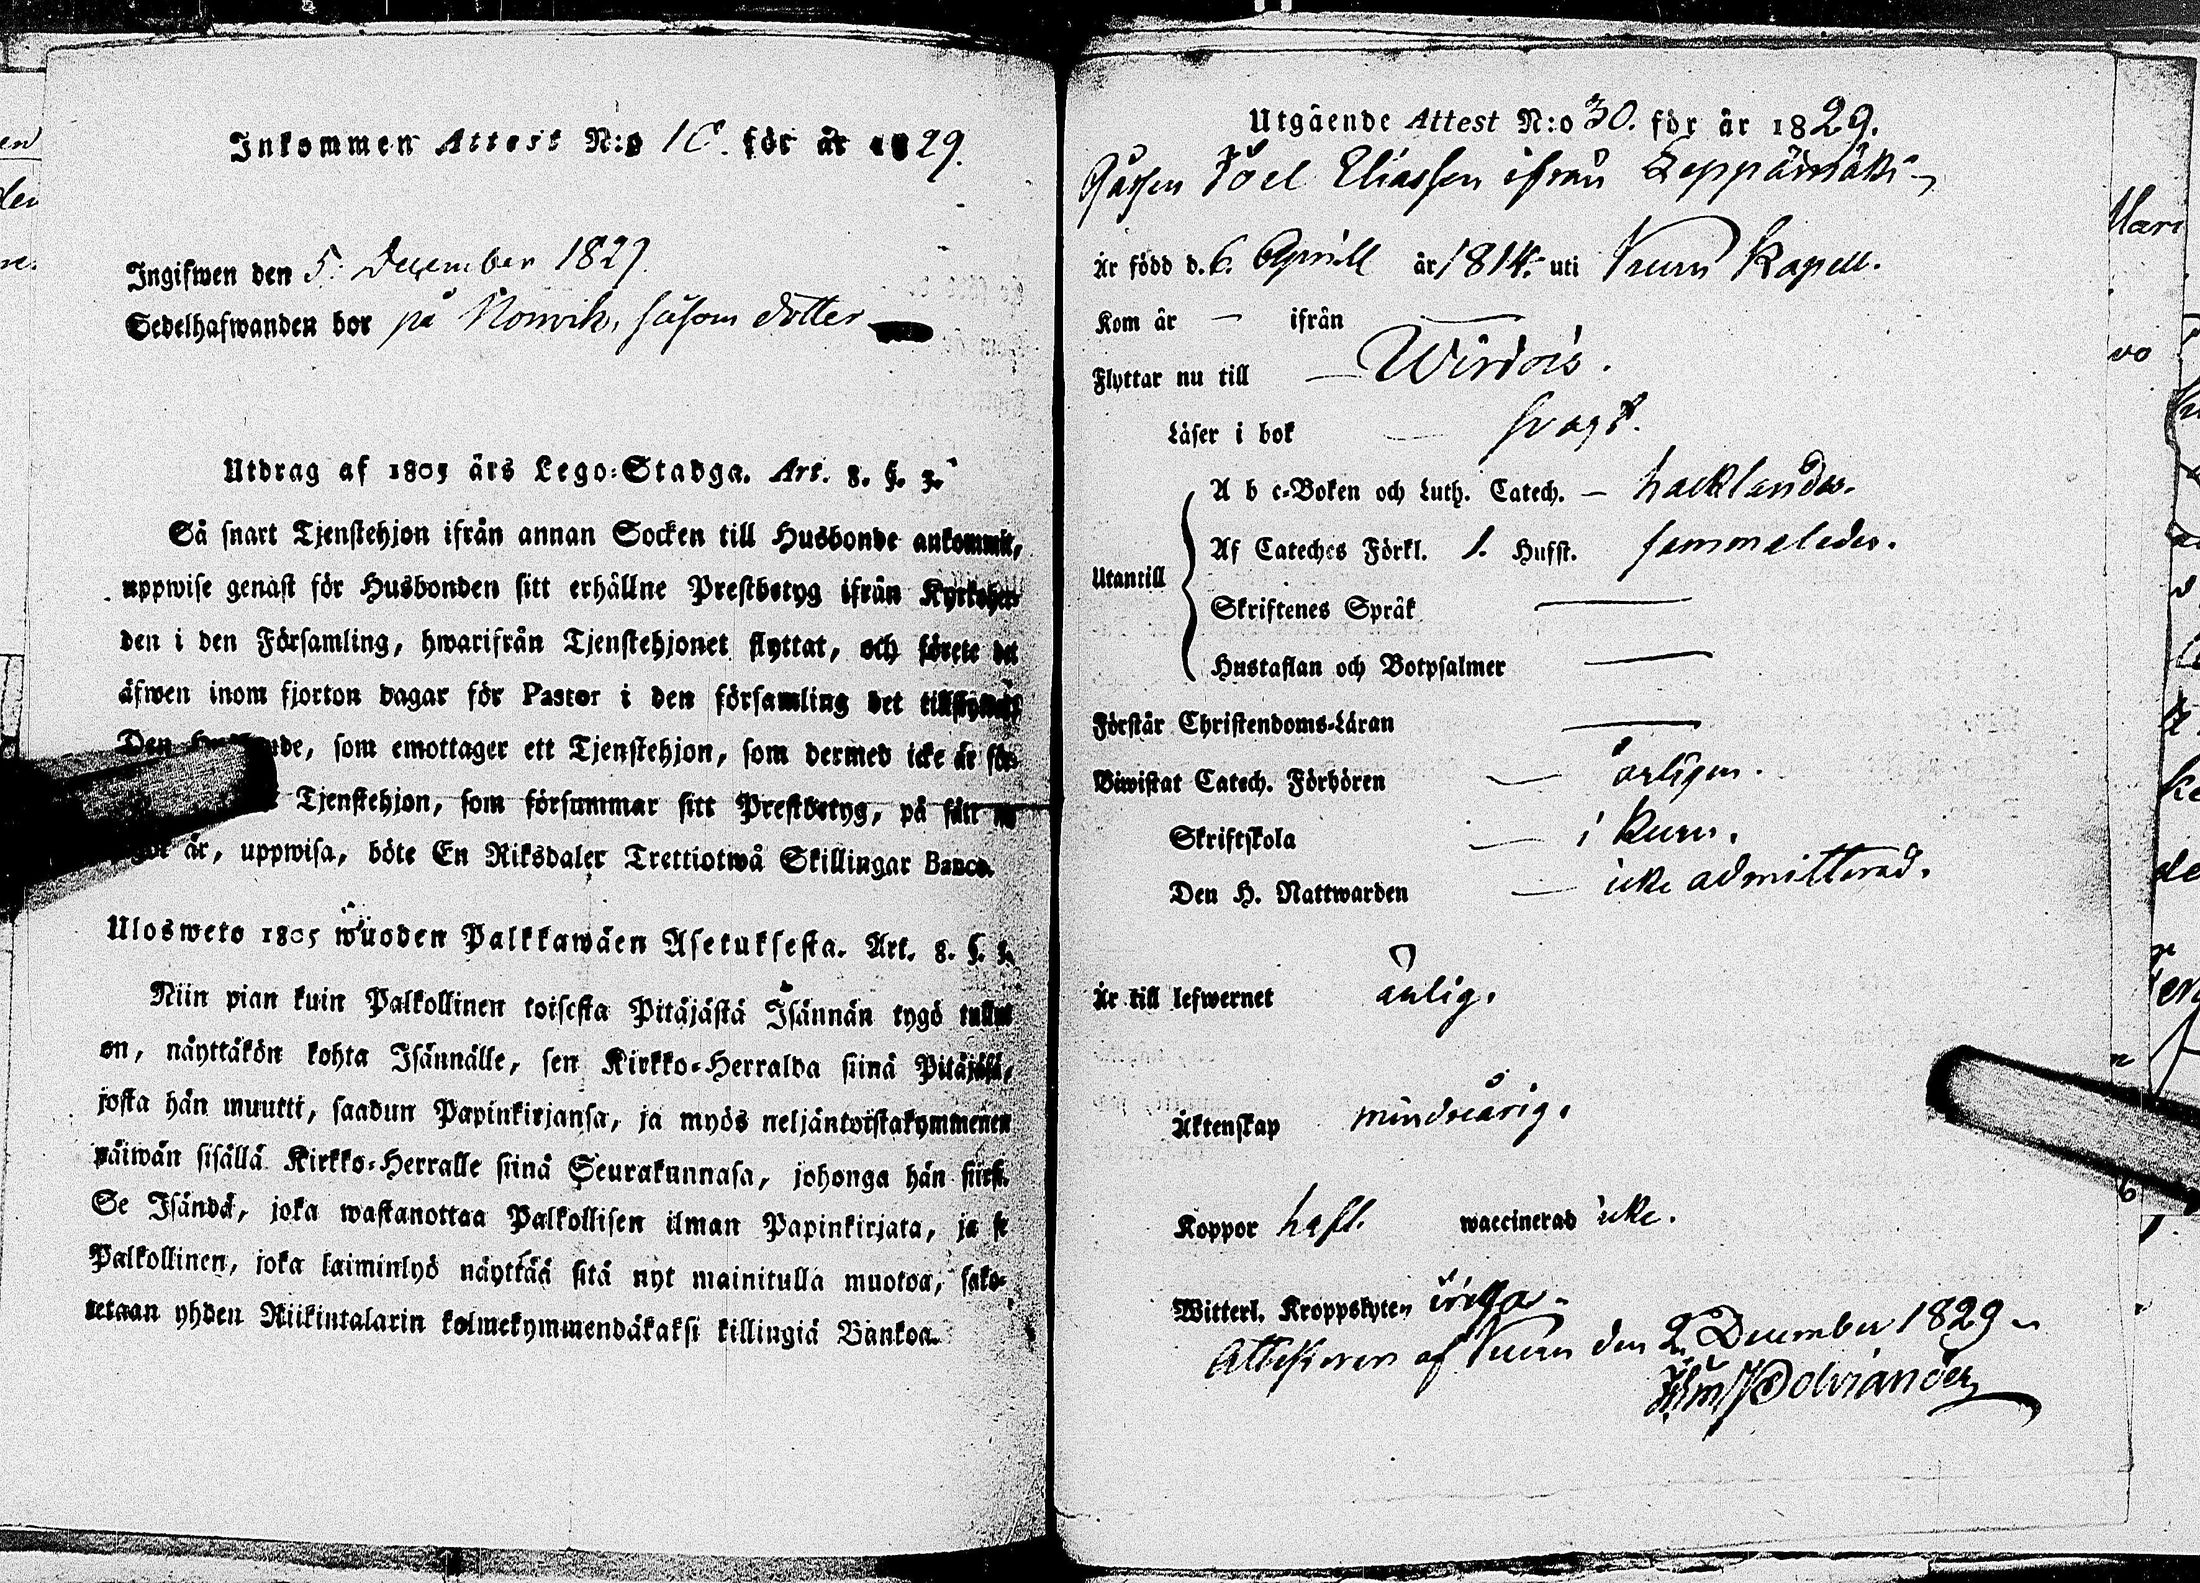 Inkommen Attest N:o 10. för år 1829.
Ingifwen den 5. December 1829.
Sedelhafwanden bor på Norvik, såsom dotter
Utdrag af 1805 års Lego-Stadga. Art. 8. §. 3.
Så snart Tjenstehjon ifrån annan Socken till Husbonde ankommit,
uppwise genast för Husbonden sitt erhållne Prestbetyg ifrån Kyrkoher-
den i den Församling, hwarifrån Tjenstehjonet flyttat, och förete det
äfwen inom fjorton dagar för Pastor i den församling det tillflyttat
Den, som emottager ett Tjenstehjon, som dermed icke är för-
Tjenstehjon, som försummar sitt Prestbetyg, på sätt
är, uppwisa, böte En Riksdaler Trettiotwå Skillingar Banco.
Ulosweto 1805 wuoden Palkkawäen Asetuksesta. Art. 8. §. 3.
Niin pian kuin Palkollinen toisesta Pitäjästä Isännän tygö tullut
on, näyttäkön kohta Isännälle, sen Kirkko-Herralda siinä Pitäjäsä,
josta hän muutti, saadun Papinkirjansa, ja myös neljäntoistakymmenen
päiwän sisällä Kirkko-Herralle siinä Seurakunnasa, johonga hän siirsi.
Se Isändä, joka wastanottaa Palkollisen ilman Papinkirjata, ja se
Palkollinen, joka laiminlyö näyttää sitä nyt mainitulla muotoa, sako-
tetaan yhden Riikintalarin kolmekymmendäkaksi killingiä Bankoa.
Utgående Attest N:o 30. för år 1829.
Gåssen Joel Eliasson ifrån Leppämäki
Är född d. 6. Aprill år 1814. uti Kuru Kapell.
Kom år — ifrån —
Flyttar nu till — Wirdois.
Läser i bok — svagt.
A b c-Boken och Luth. Catech. — hacklandes.
Af Cateches Förkl. 1. Hufst. sammaledes.
Utantill
Skriftenes Språk —
Hustaflan och Botpsalmer —
Förstår Christendoms-Läran —
Biwistat Catech. Förhören — årligen.
Skriftskola — i Kuru.
Den H. Nattwarden — icke admitterad.
Är till lefwernet ärlig.
Äktenskap minderårig.
Koppor haft. waccinerad icke.
Witterl. Kroppslyten inga.
Attesteras af Kuru den 2. December 1829